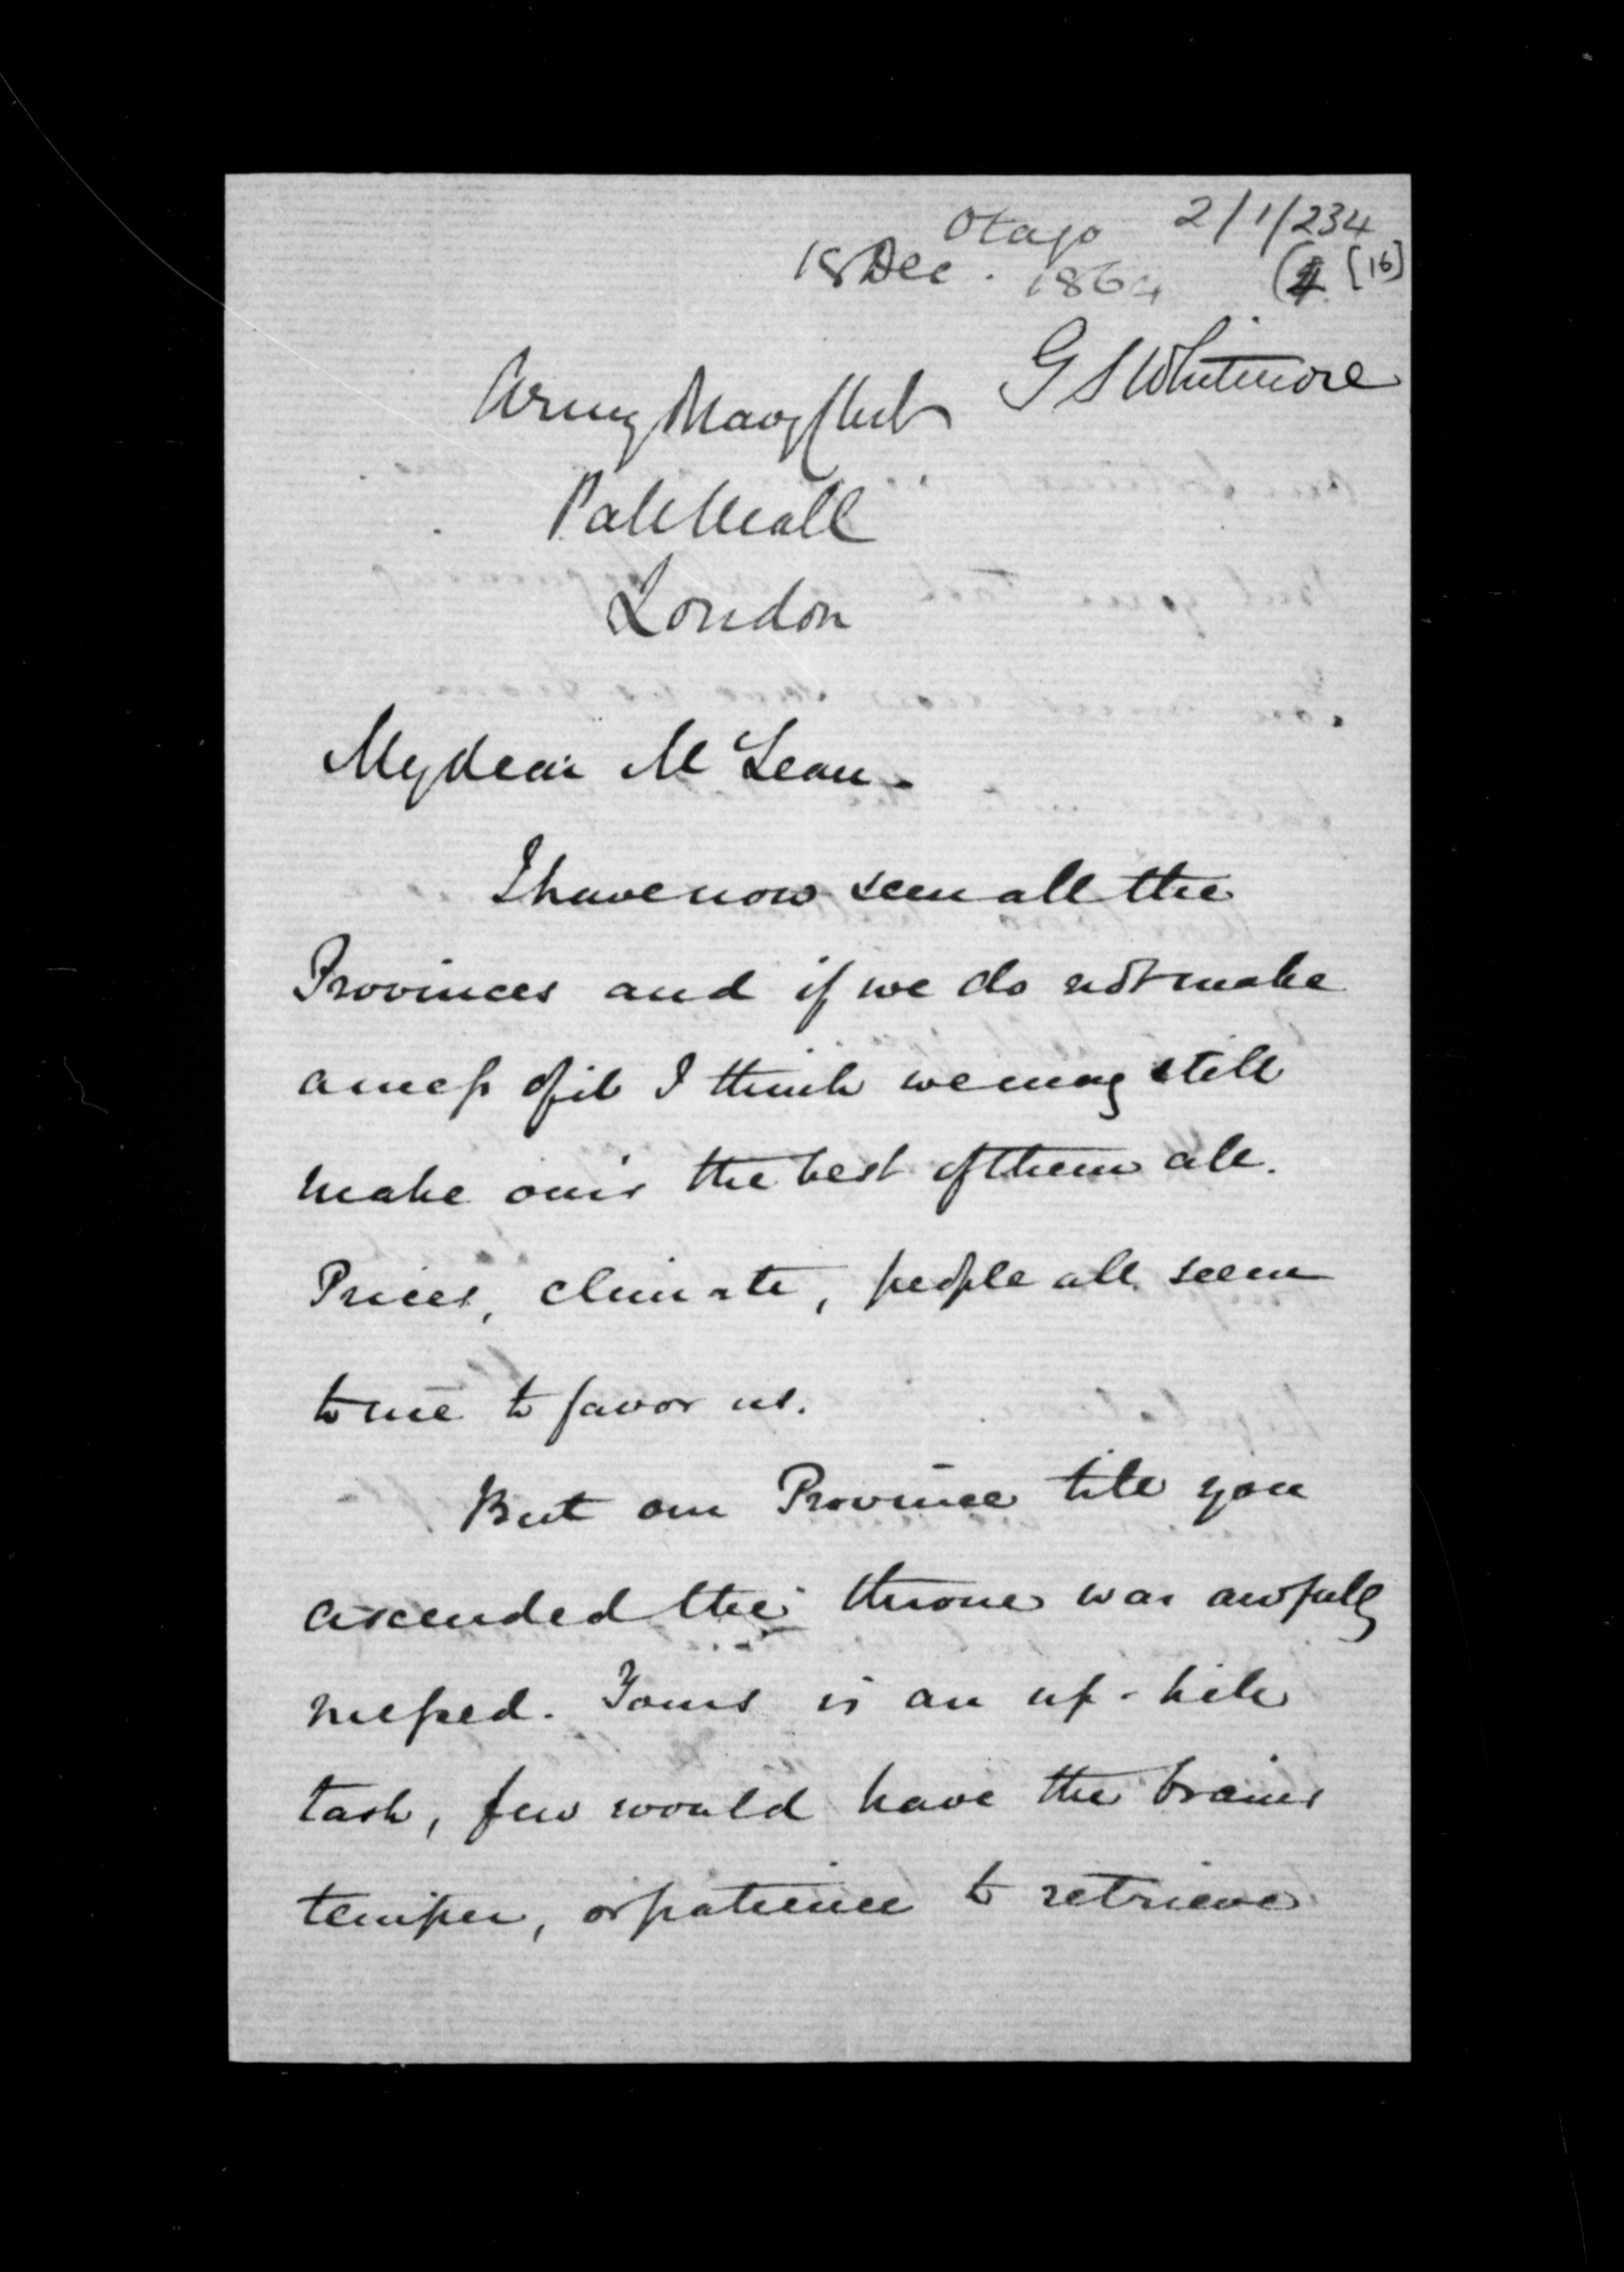 Otago 2/1/234
18 Dec. 1864 [16]
G S Whitmore
Army Navy Club
Pall Mall
London
My dear McLean.
I have now seen all the
Provinces and if we do not make
a mess of it I think we may still
make ours the best of them all.
Prices, climate, people all seem
to me to favor us.
But our Province till you
ascended the throne was awfully
messed. Yours is an up-hill
task, few would have the brains
temper, or patience to retrieve